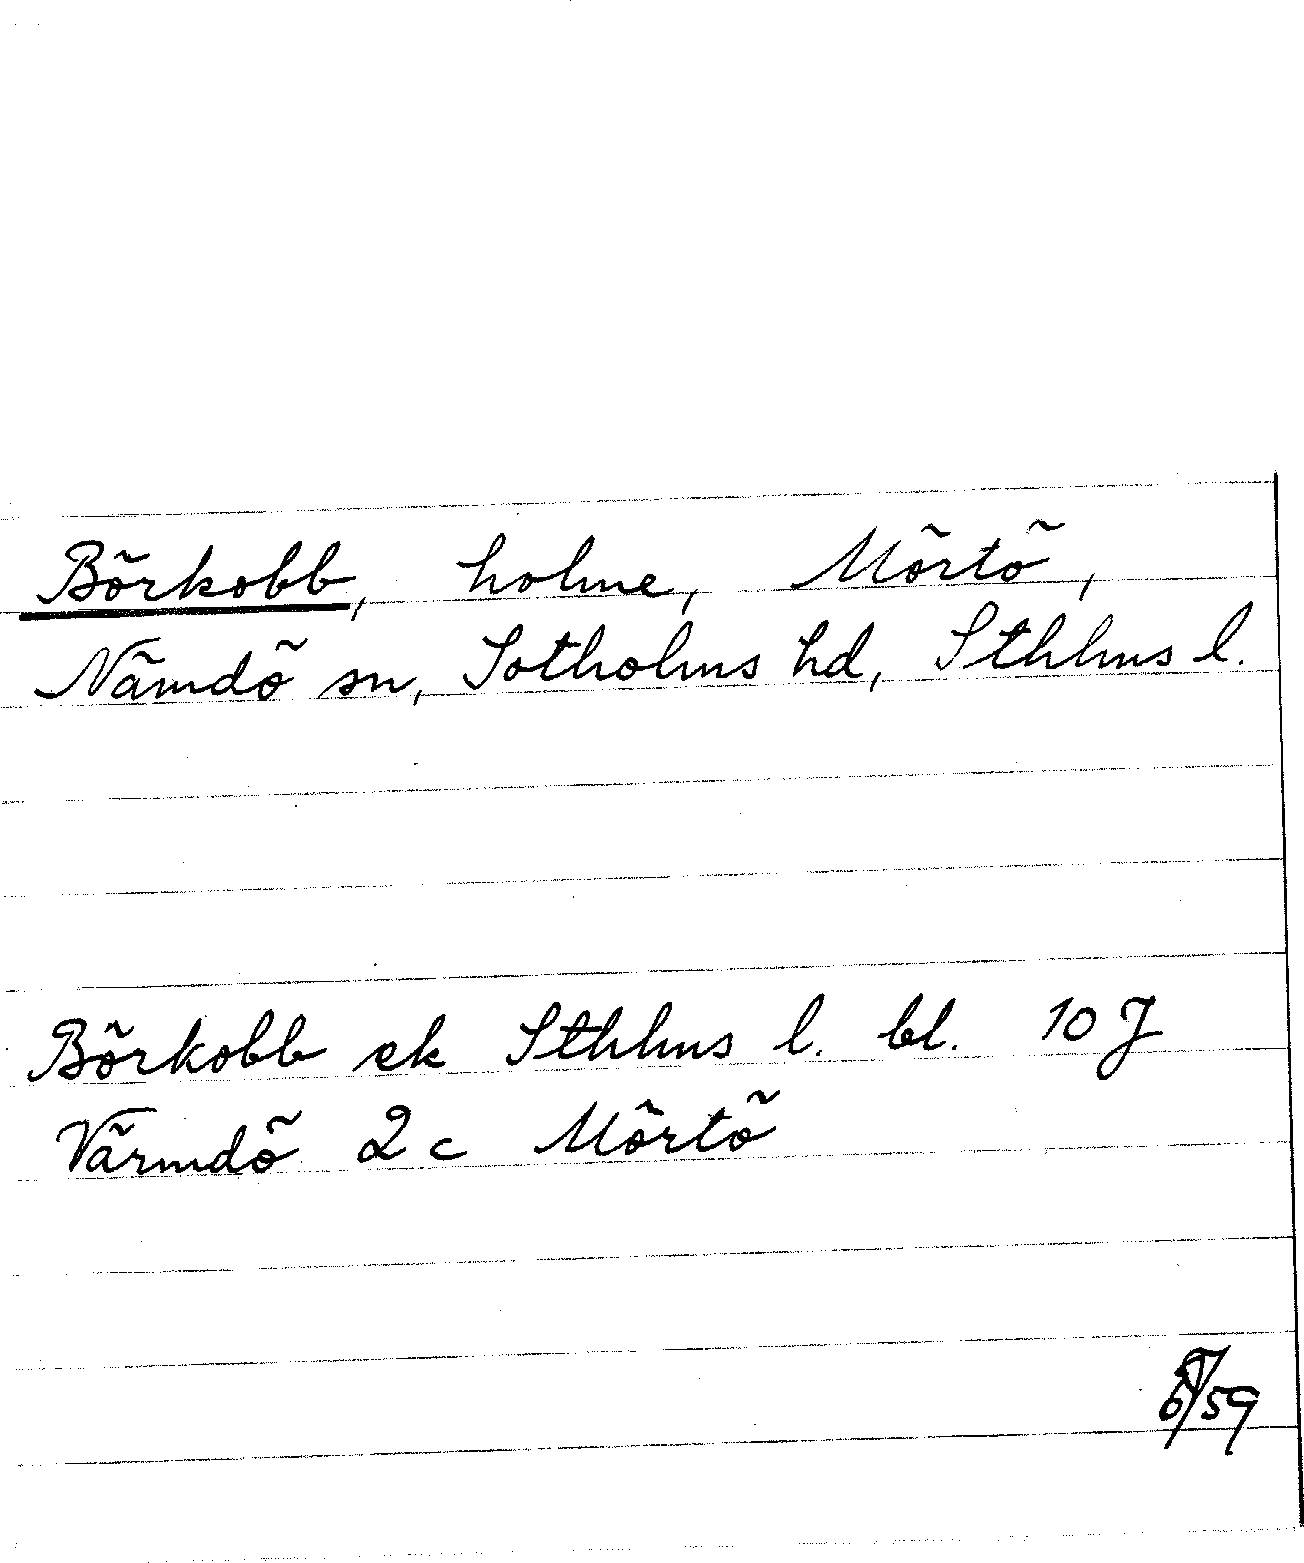 Börkobb, holme, Mörtö,
Nämdö sn, Sotholms hd, Sthlms l.
Börkobb ek Sthlms l. bl. 10 J
Värmdö 2c Mörtö
/59